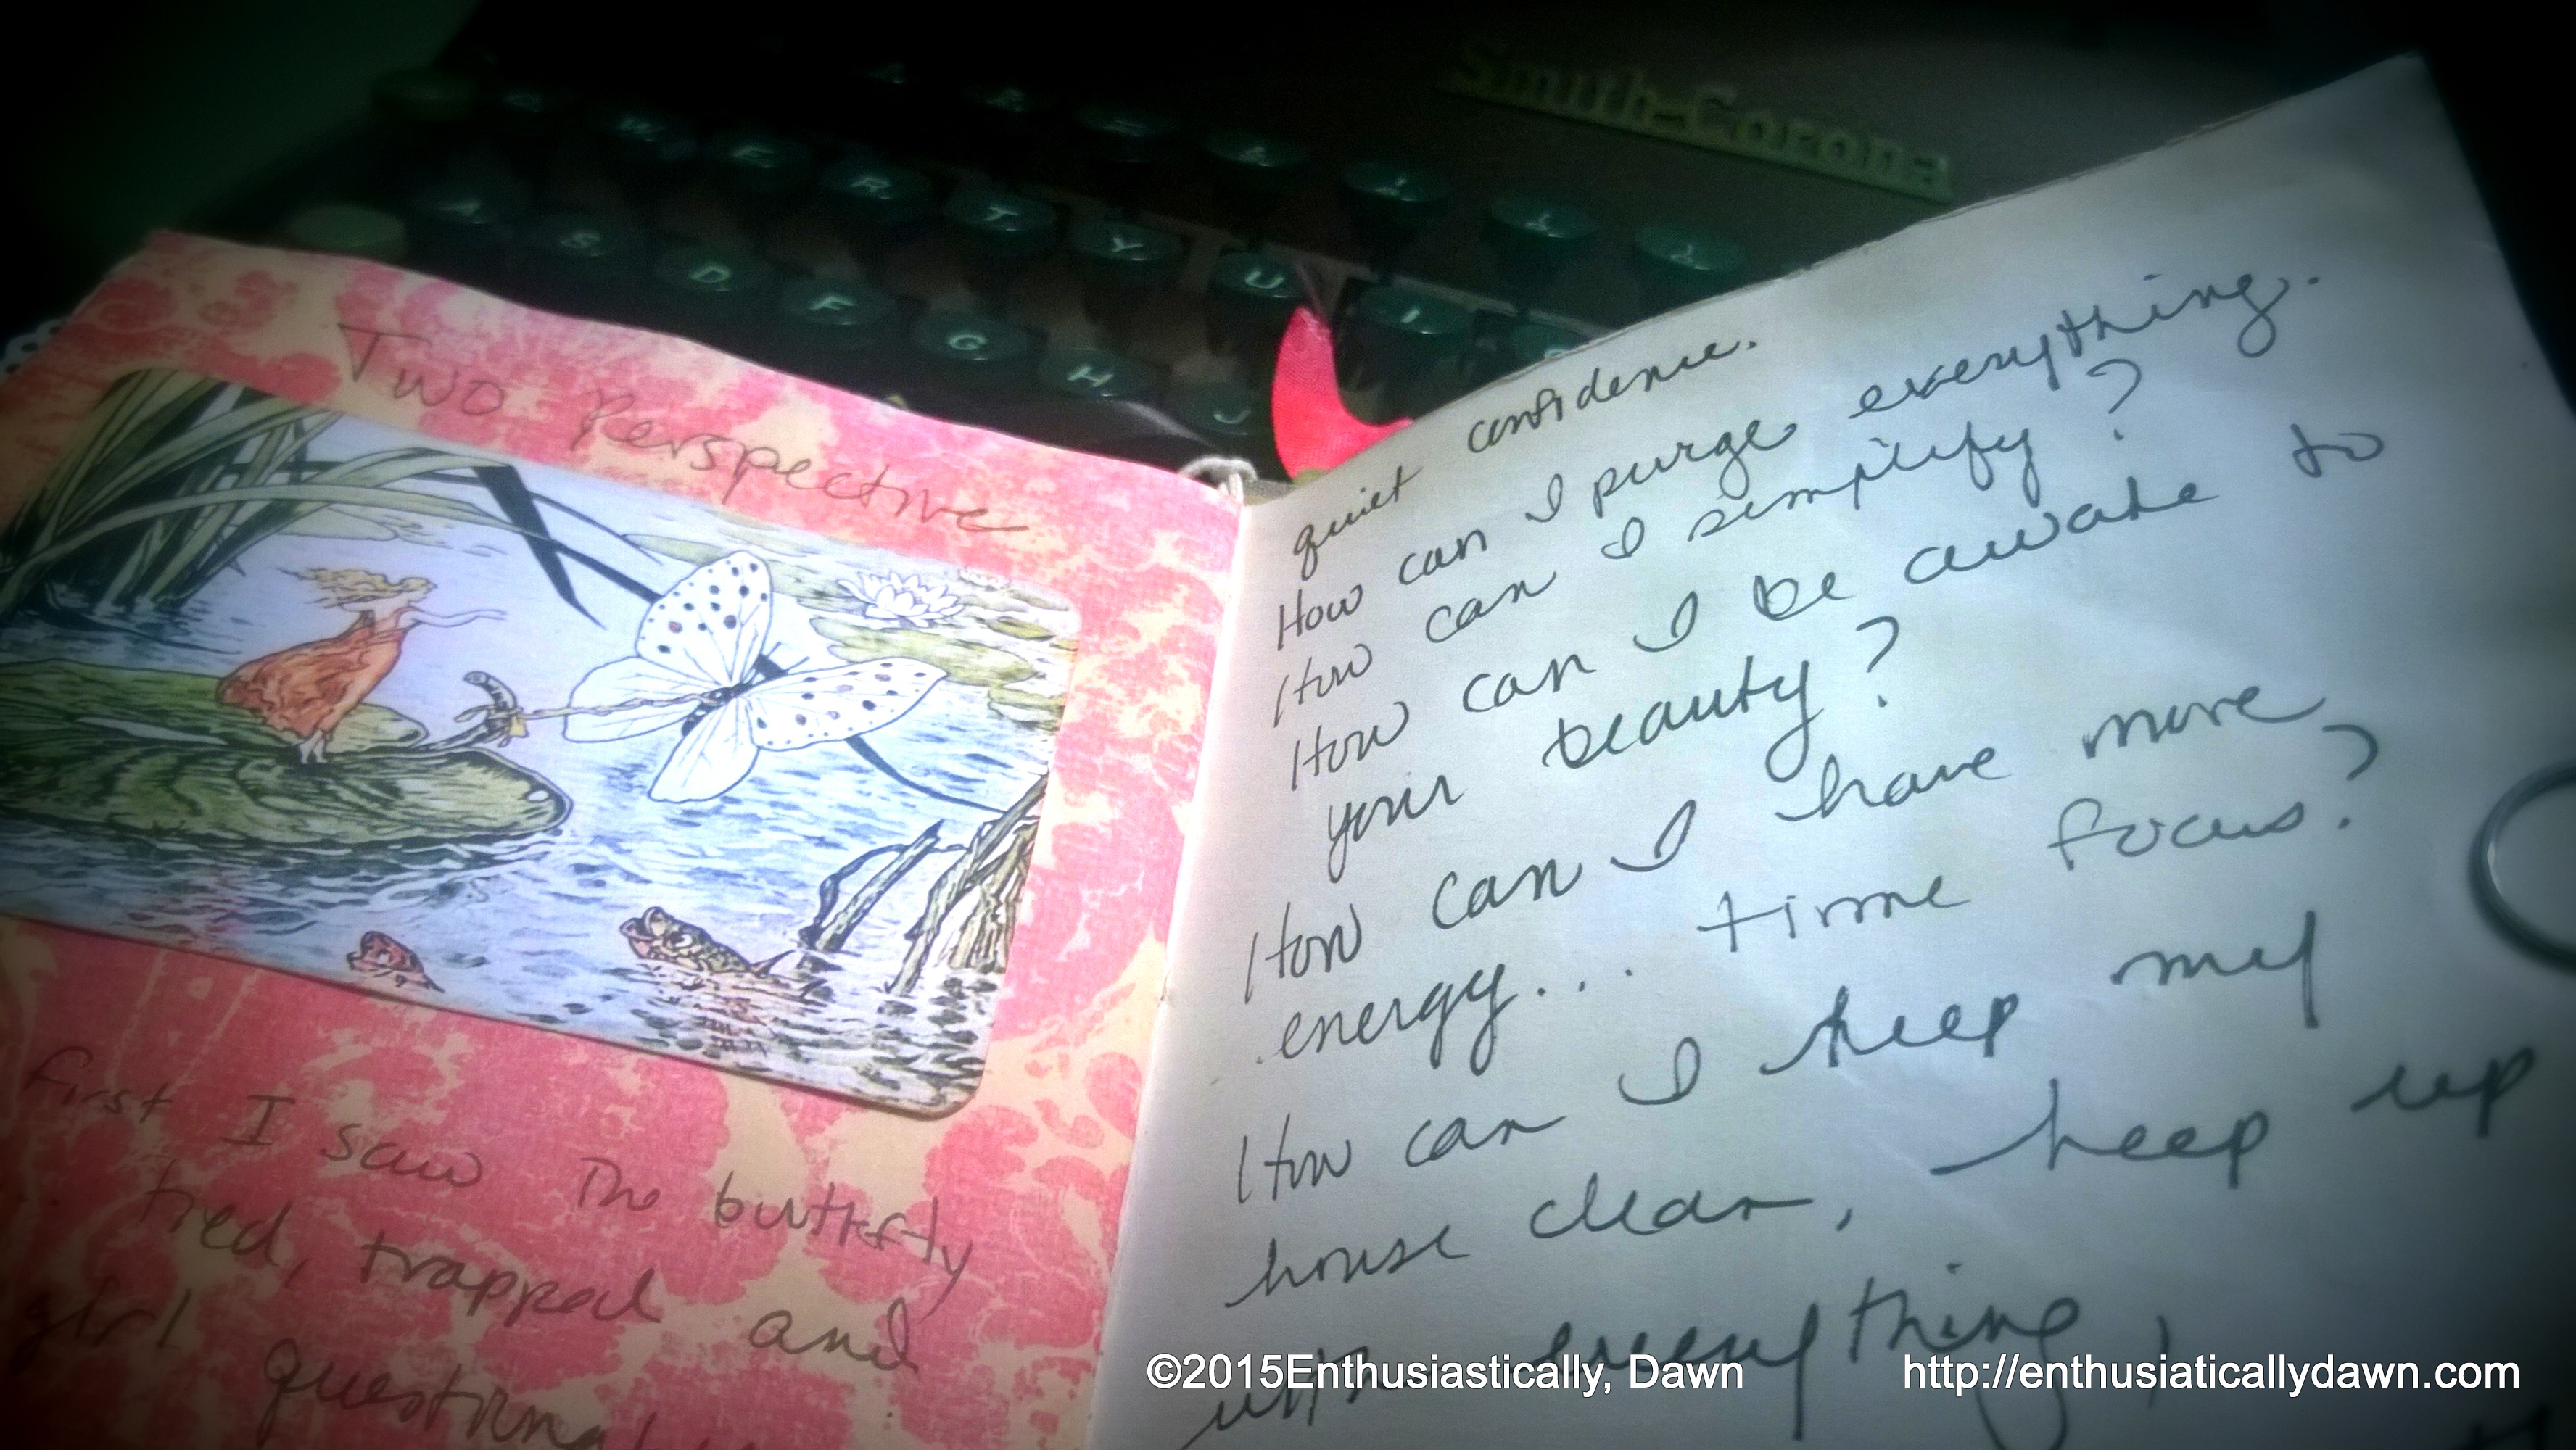 Smith-Corona
W E R T Y U I
A S D F G H J
Two Perspective
first I saw the butterfly
tied, trapped and
girl
quiet confidence.
How can I purge everything.
How can I simplify?
How can I be awake to
your beauty?
How can I have more
energy... time focus?
How can I keep my
house clean, keep up
with everything,
©2015Enthusiastically, Dawn
http://enthusiaticallydawn.com